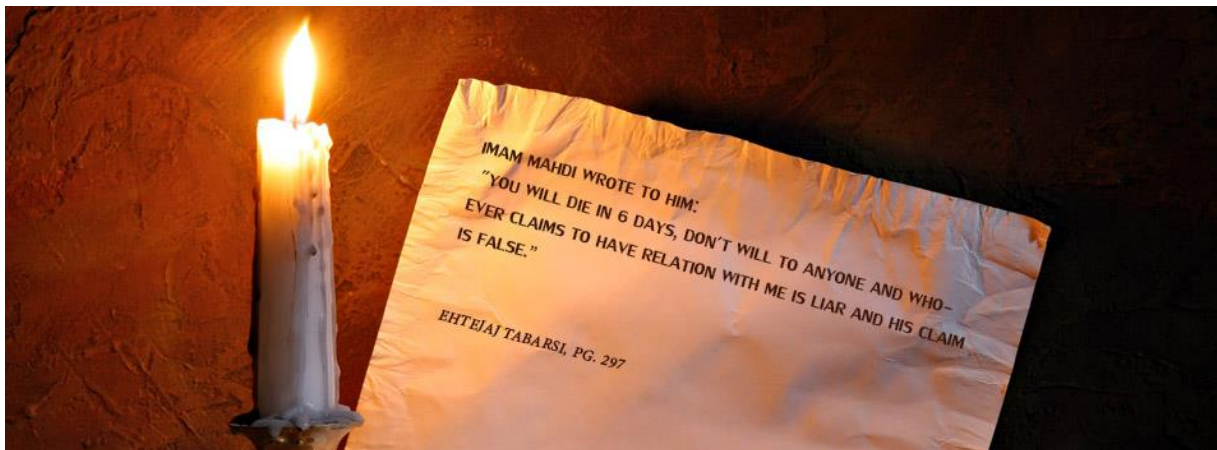 IMAM MAHDI WROTE TO HIM:
"YOU WILL DIE IN 6 DAYS, DON'T WILL TO ANYONE AND WHO-
EVER CLAIMS TO HAVE RELATION WITH ME IS LIAR AND HIS CLAIM
IS FALSE."
EHTEJAJ TABARSI, PG. 297